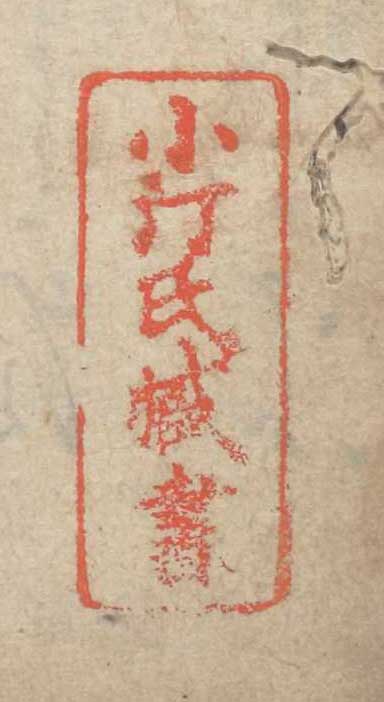 小汀氏藏書